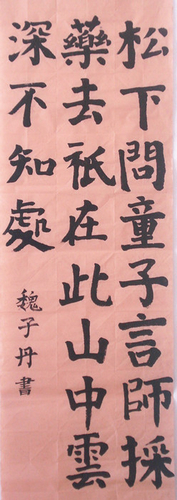 松下問童子言師採
藥去祇在此山中雲
深不知處
魏子丹書